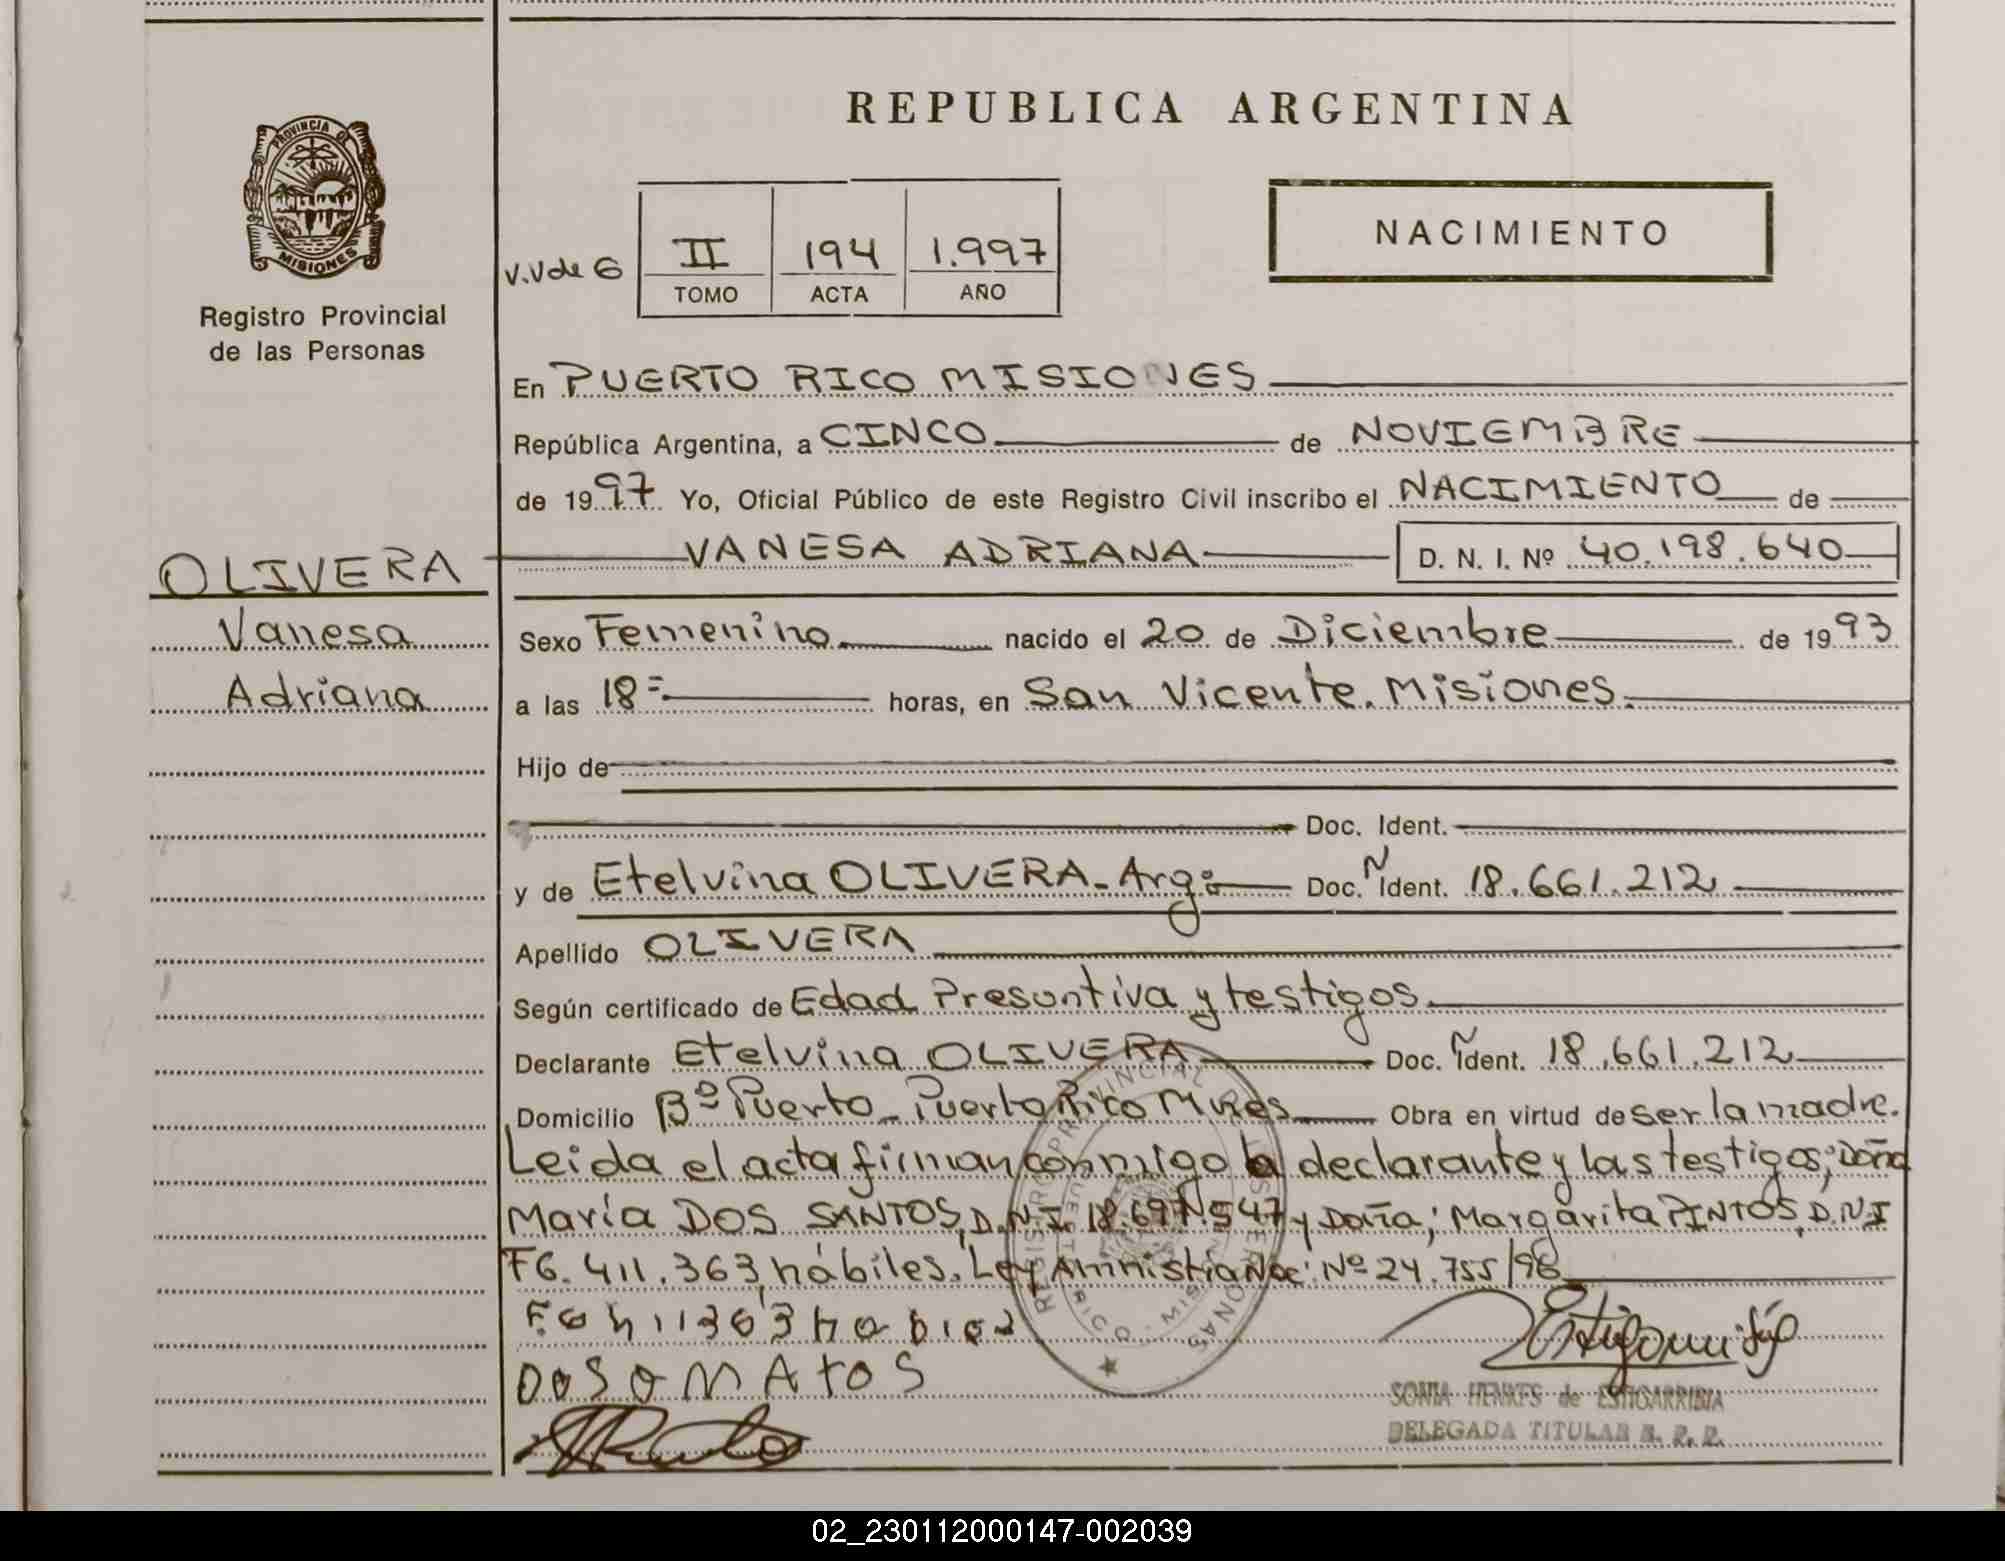 REPUBLICA ARGENTINA
PROVINCIA DE
MISIONES
Registro Provincial
de las Personas
NACIMIENTO
V.V de 6
II 194 1.997
TOMO ACTA AÑO
En PUERTO RICO MISIONES
República Argentina, a CINCO de NOVIEMBRE
de 1997 Yo, Oficial Público de este Registro Civil inscribo el NACIMIENTO de
OLIVERA VANESA ADRIANA D. N. I. Nº 40.198.640
Vanesa
Adriana
Sexo Femenino nacido el 20 de Diciembre de 1993
a las 18= horas, en San Vicente. Misiones.
Hijo de
Doc. Ident.
y de Etelvina OLIVERA - Arg: Doc. N Ident. 18.661.212
Apellido OLIVERA
Según certificado de Edad Presuntiva y testigos.
Declarante Etelvina OLIVERA Doc. N Ident. 18.661.212
Domicilio Bº Puerto - Puerto Rico Mnes Obra en virtud de ser la madre.
Leida el acta firman conmigo la declarante y las testigos; Doña
María DOS SANTOS, D.N.I. 18.697.547 y Doña; Margarita PINTOS, D.N.I
F6.411.363, hábiles. Ley Amnistía Nac: Nº 24.755/96
REGISTRO PROVINCIAL DE LAS PERSONAS
PUERTO RICO - MISIONES
SONIA HENKES de ESTIGARRIBIA
DELEGADA TITULAR R. P. P.
02_230112000147-002039